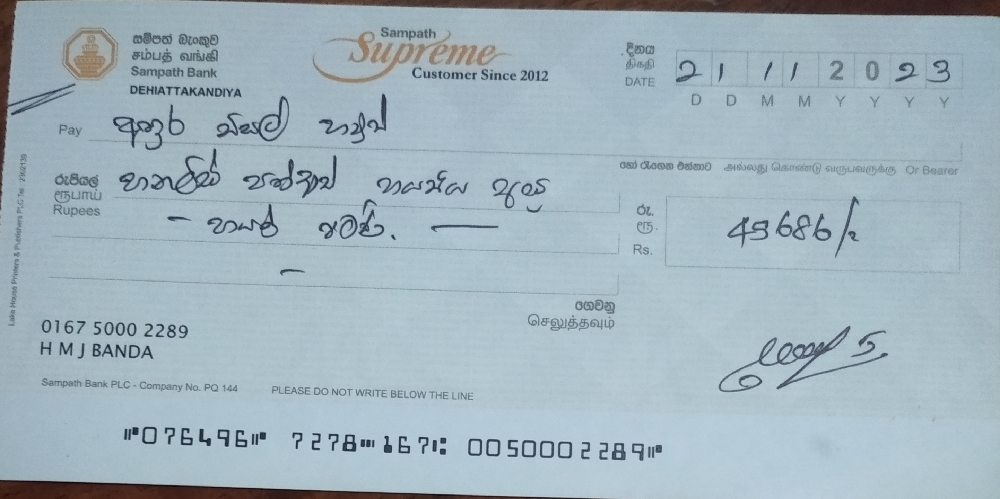 සම්පත් බැංකුව
சம்பத் வங்கி
Sampath Bank
DEHIATTAKANDIYA
Sampath
Supreme
Customer Since 2012
දිනය
திகதி
DATE
21 11 2023
D D M M Y Y Y Y
Pay
හෝ රැගෙන එන්නාට அல்லது கொண்டு வருபவருக்கு Or Bearer
රුපියල්
ரூபாய்
Rupees
හයසිය අසූ
හයක් පමණි.
රු.
ரூ.
Rs.
49686/=
ගෙවනු
செலுத்தவும்
0167 5000 2289
H M J BANDA
Sampath Bank PLC - Company No. PQ 144 PLEASE DO NOT WRITE BELOW THE LINE
⑈076496⑈ 7278⑉167⑆ 0050002289⑈